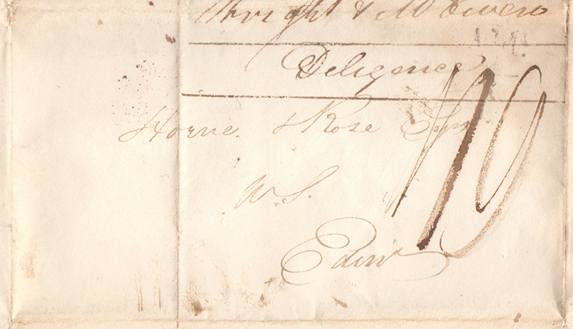 Wright & McEwen
Deligence
Horne & Rose Esqrs
W.S.
Edinr
10